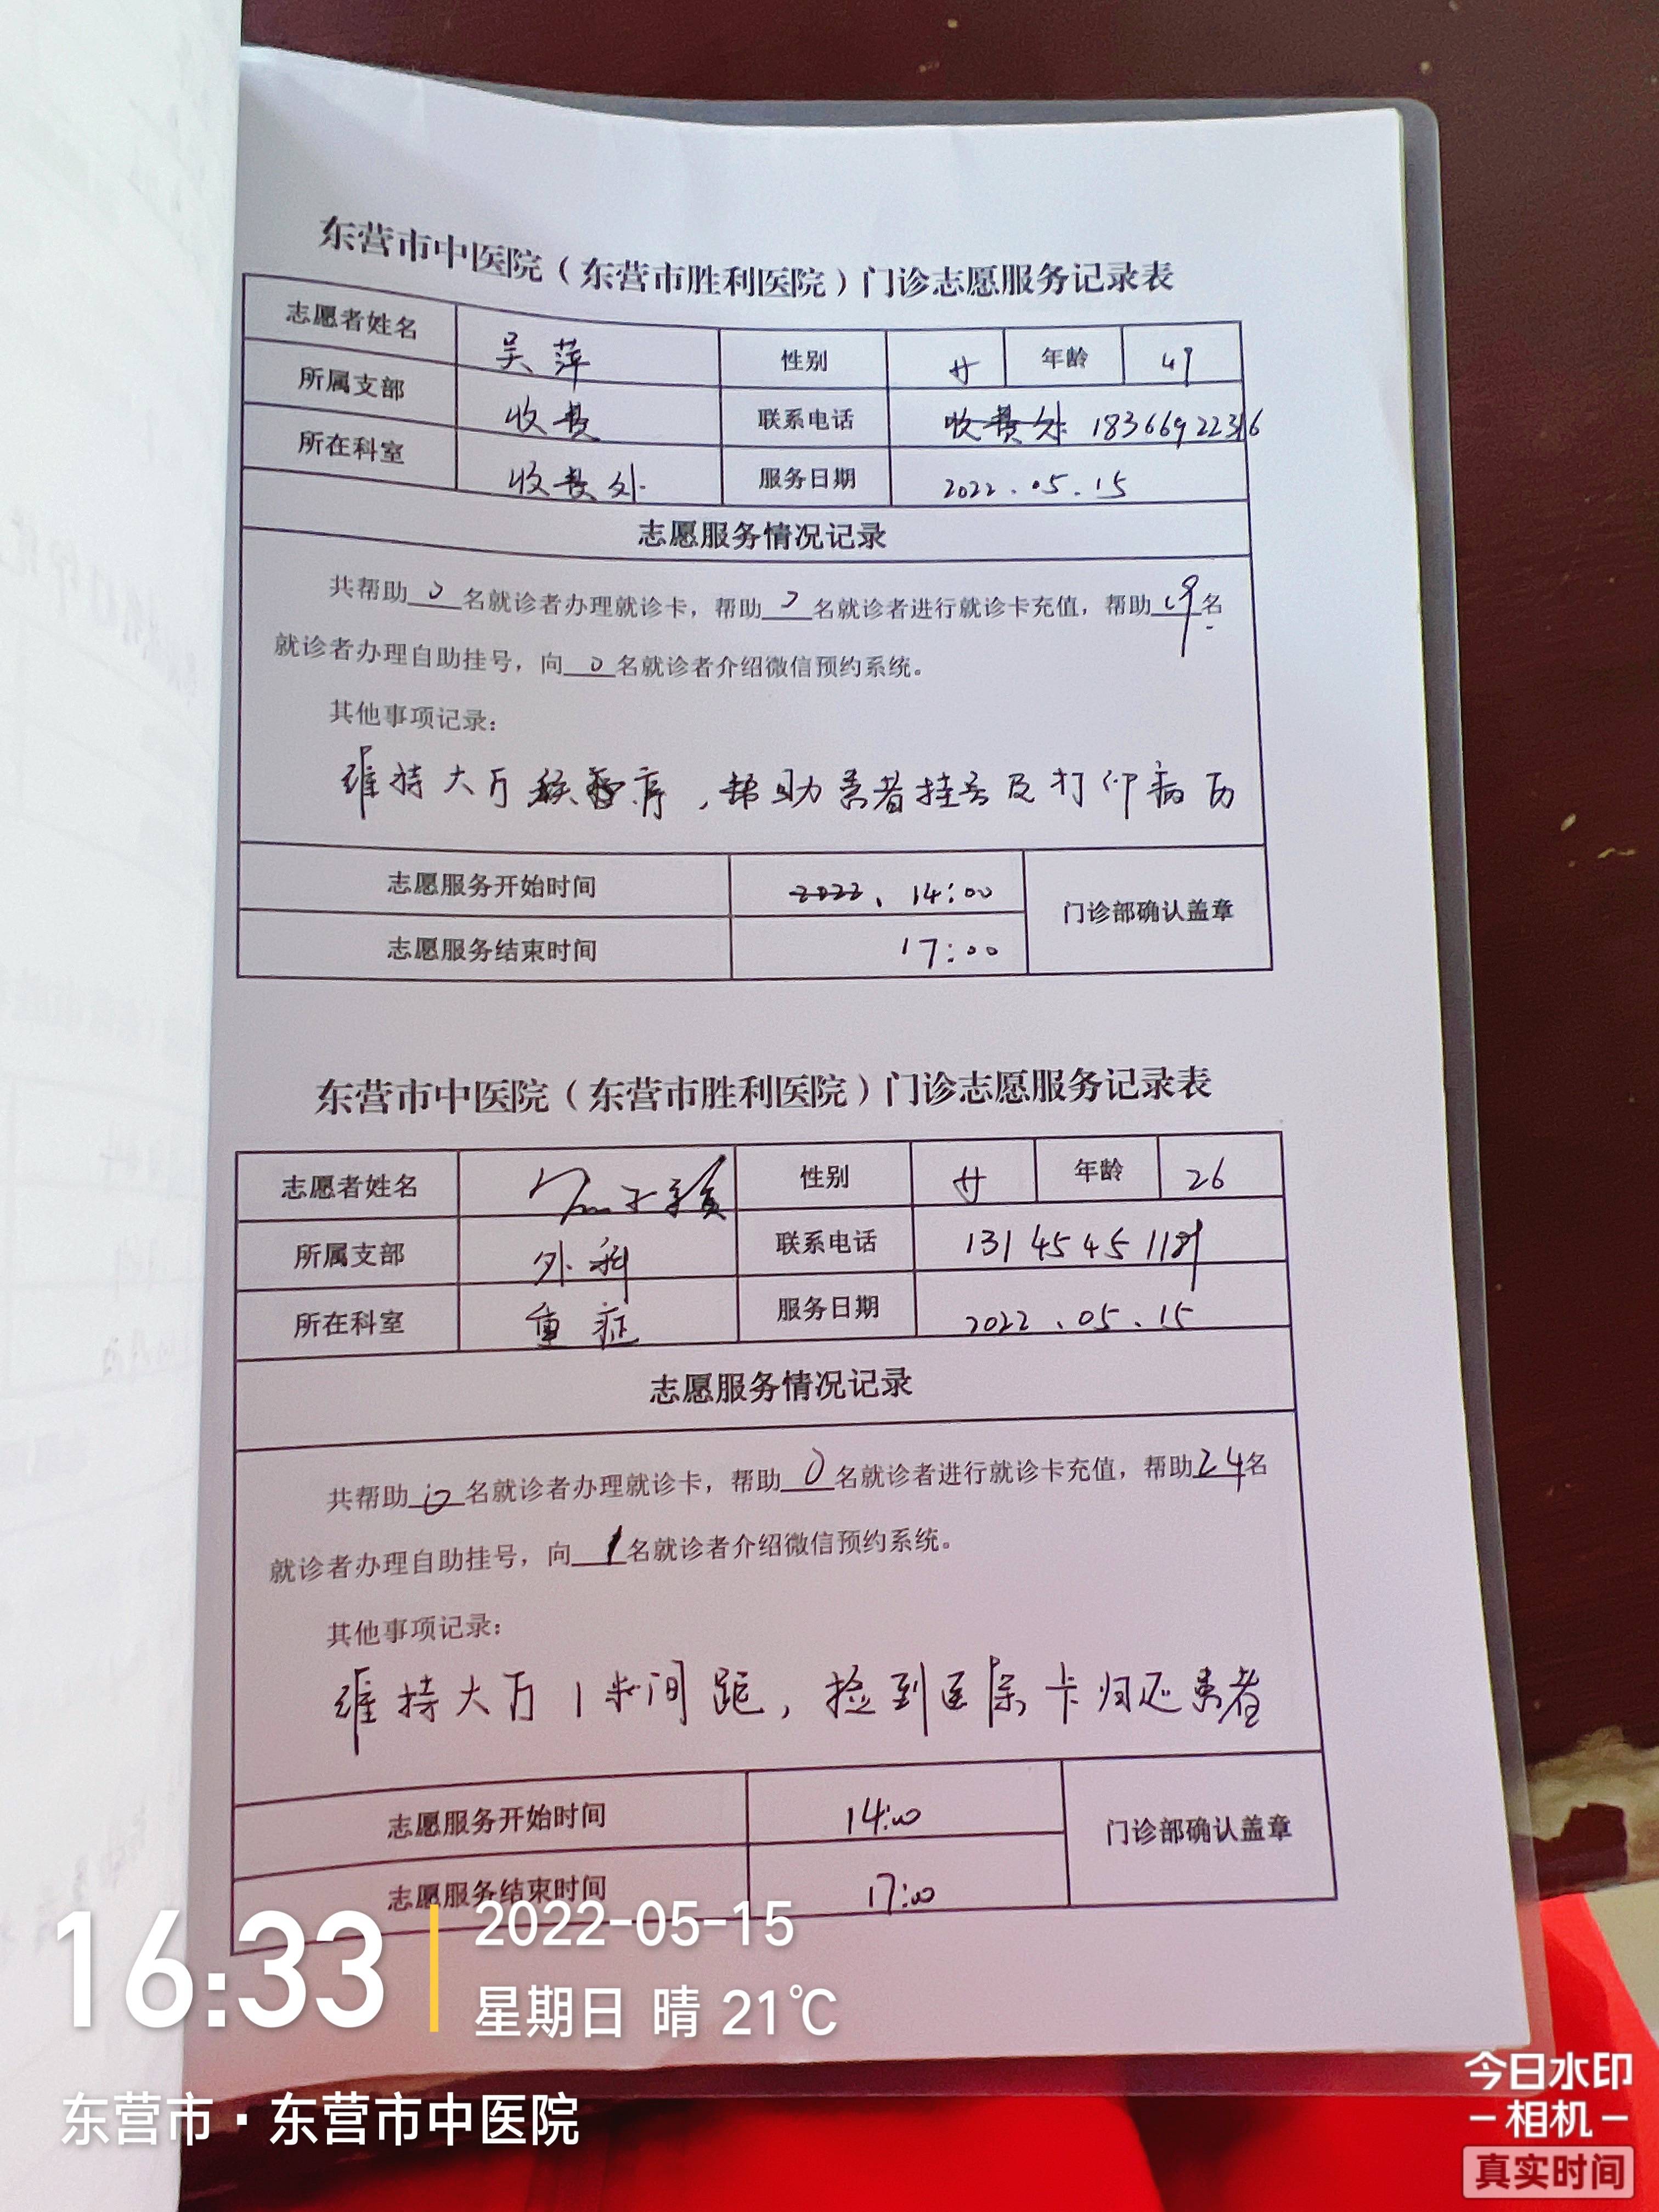 东营市中医院（东营市胜利医院）门诊志愿服务记录表
志愿者姓名 吴萍 性别 女 年龄 49
所属支部 收费 联系电话 收费处 18366922316
所在科室 收费处 服务日期 2022.05.15
志愿服务情况记录
共帮助 0 名就诊者办理就诊卡，帮助 名就诊者进行就诊卡充值，帮助 19 名
就诊者办理自助挂号，向 0 名就诊者介绍微信预约系统。
其他事项记录：
维持大厅秩序，帮助患者挂号及打印病历
志愿服务开始时间 2022、14:00 门诊部确认盖章
志愿服务结束时间 17:00
东营市中医院（东营市胜利医院）门诊志愿服务记录表
志愿者姓名 性别 女 年龄 26
所属支部 外科 联系电话 13145451189
所在科室 重症 服务日期 2022.05.15
志愿服务情况记录
共帮助 名就诊者办理就诊卡，帮助 0 名就诊者进行就诊卡充值，帮助 24 名
就诊者办理自助挂号，向 1 名就诊者介绍微信预约系统。
其他事项记录：
维持大厅1米间距，捡到医保卡归还患者
志愿服务开始时间 14:00 门诊部确认盖章
志愿服务结束时间 17:00
16:33 2022-05-15
星期日 晴 21℃
东营市·东营市中医院
今日水印
相机
真实时间